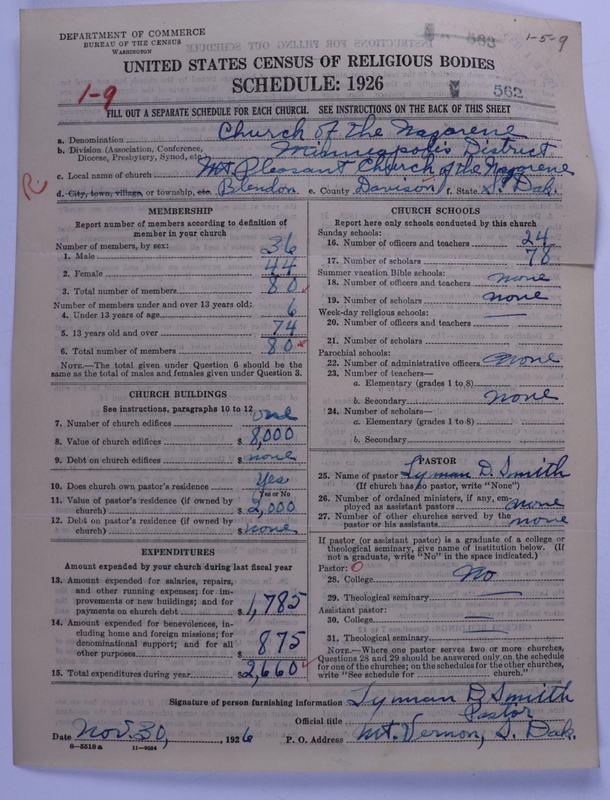 DEPARTMENT OF COMMERCE
BUREAU OF THE CENSUS
WASHINGTON
1-5-9
UNITED STATES CENSUS OF RELIGIOUS BODIES
SCHEDULE: 1926
1-9
562
FILL OUT A SEPARATE SCHEDULE FOR EACH CHURCH. SEE INSTRUCTIONS ON THE BACK OF THIS SHEET
a. Denomination Church of the Nazarene
b. Division (Association, Conference, Diocese, Presbytery, Synod, etc.) Minneapolis District
c. Local name of church Mt. Pleasant Church of the Nazarene
R.
d. City, town, village, or township, etc. Blendon e. County Davison f. State S. Dak.
MEMBERSHIP
Report number of members according to definition of
member in your church
Number of members, by sex:
1. Male 36
2. Female 44
3. Total number of members 80
Number of members under and over 13 years old:
4. Under 13 years of age 6
5. 13 years old and over 74
6. Total number of members 80
NOTE.—The total given under Question 6 should be
same as the total of males and females given under Question 3.
CHURCH BUILDINGS
See instructions, paragraphs 10 to 12
7. Number of church edifices one
8. Value of church edifices $ 8,000
9. Debt on church edifices $ none
10. Does church own pastor's residence Yes
Yes or No
11. Value of pastor's residence (if owned by
church) $ 2,000
12. Debt on pastor's residence (if owned by
church) $ none
EXPENDITURES
Amount expended by your church during last fiscal year
13. Amount expended for salaries, repairs,
and other running expenses; for im-
provements or new buildings; and for
payments on church debt $ 1,785
14. Amount expended for benevolences, in-
cluding home and foreign missions; for
denominational support; and for all
other purposes $ 875
15. Total expenditures during year $ 2,660
CHURCH SCHOOLS
Report here only schools conducted by this church
Sunday schools:
16. Number of officers and teachers 24
17. Number of scholars 76
Summer vacation Bible schools:
18. Number of officers and teachers none
19. Number of scholars none
Week-day religious schools:
20. Number of officers and teachers
21. Number of scholars
Parochial schools:
22. Number of administrative officers none
23. Number of teachers—
a. Elementary (grades 1 to 8)
b. Secondary none
24. Number of scholars—
a. Elementary (grades 1 to 8)
b. Secondary
PASTOR
25. Name of pastor Lyman D. Smith
(If church has no pastor, write "None")
26. Number of ordained ministers, if any, em-
ployed as assistant pastors none
27. Number of other churches served by the
pastor or his assistants none
If pastor (or assistant pastor) is a graduate of a college or
theological seminary, give name of institution below. (If
not a graduate, write "No" in the space indicated.)
Pastor: O
28. College No
29. Theological seminary
Assistant pastor:
30. College
31. Theological seminary
NOTE.—Where one pastor serves two or more churches,
Questions 28 and 29 should be answered only on the schedule
for one of the churches; on the schedules for the other churches,
write "See schedule for church."
Signature of person furnishing information Lyman D. Smith
Official title Pastor
Date Nov. 30, , 1926 P. O. Address Mt. Vernon, S. Dak.
8—5518a 11—9094